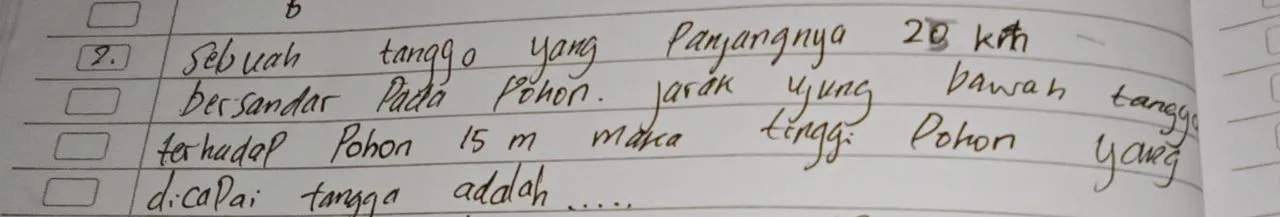 2. Sebuah tanggo yang Panjangnya 20 km
bersandar Pada Pohon. jarak ujung bawah tangga
terhadap Pohon 15 m maka tinggi Pohon yang
dicapai tangga adalah.....